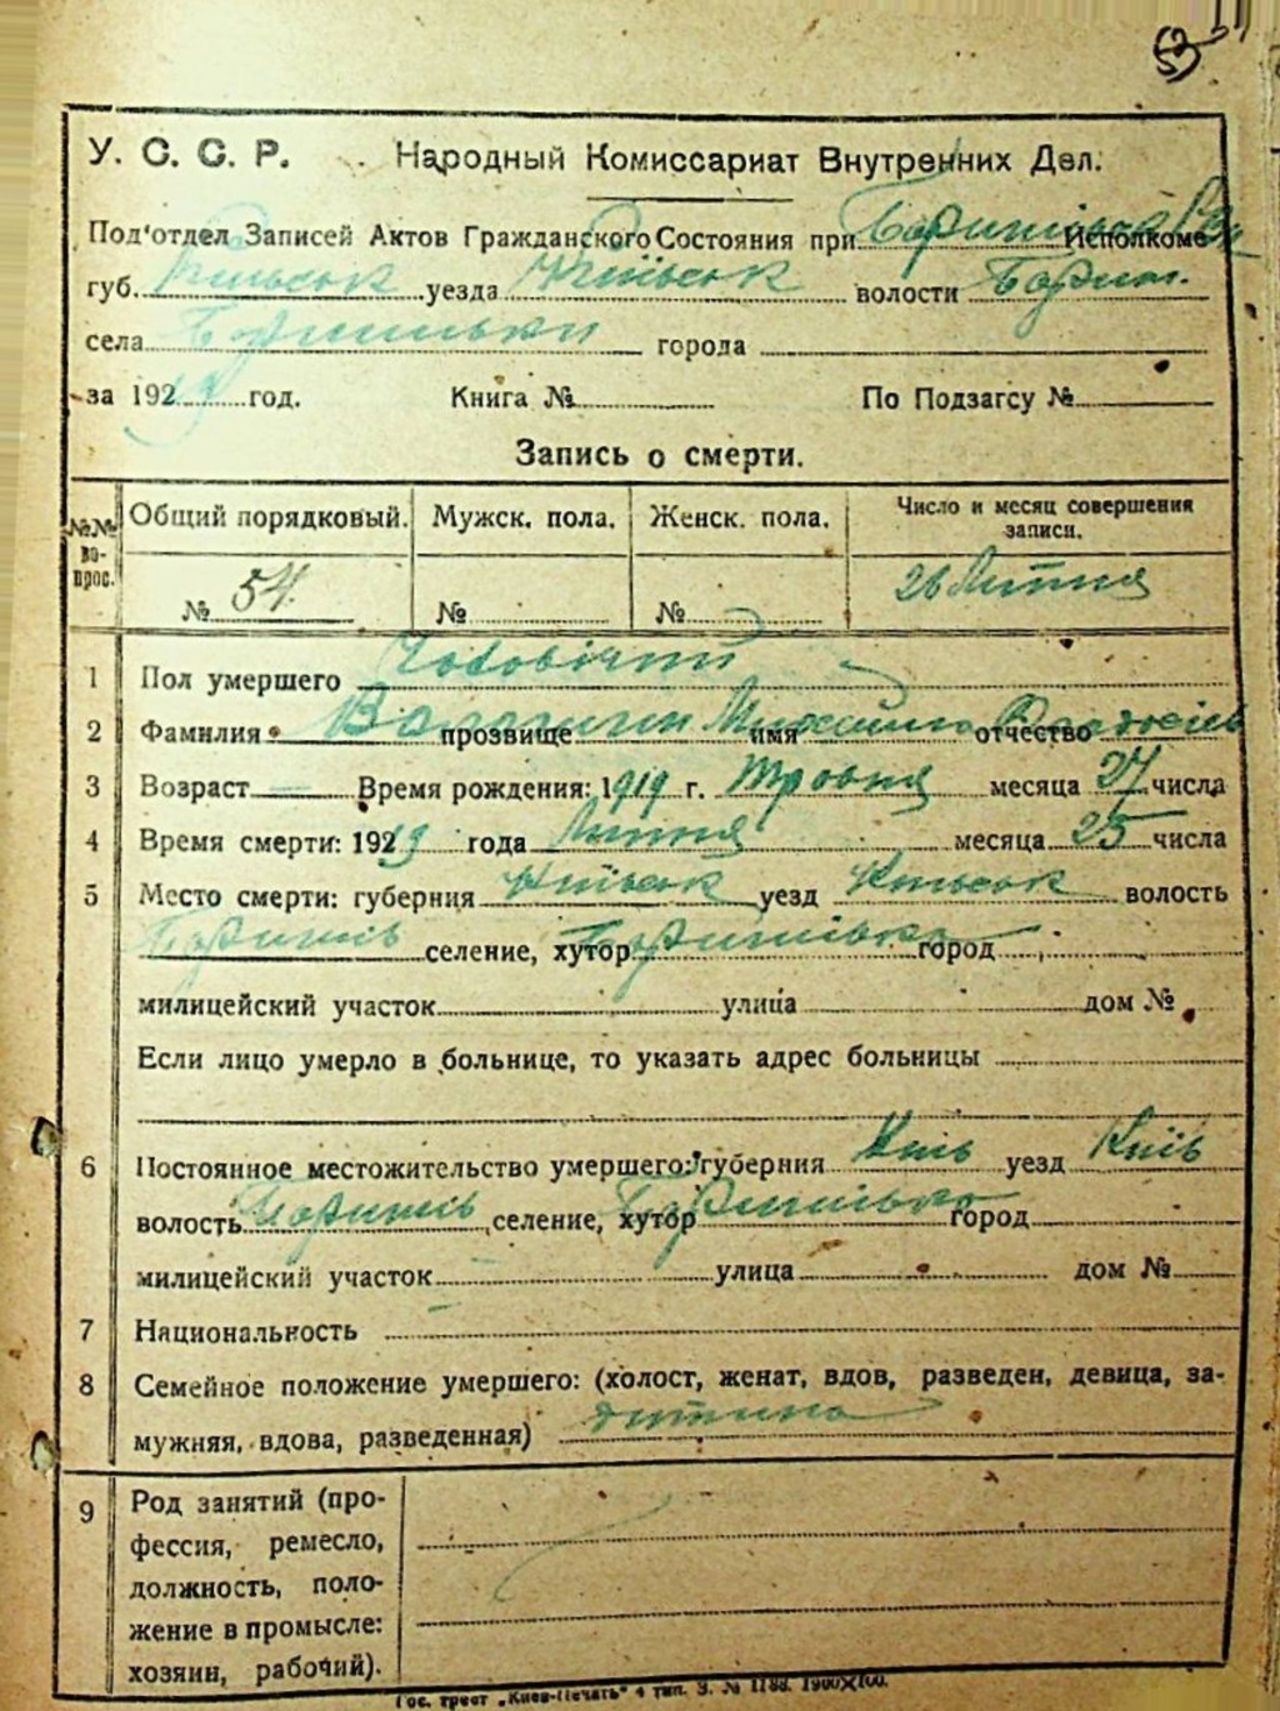 53
У. С. С. Р. Народный Комиссариат Внутренних Дел.
Под'отдел Записей Актов Гражданского Состояния при Исполкоме
губ. Київськ уезда Київськ волости Бориш.
села города
за 1929 год. Книга № По Подзагсу №
Запись о смерти.
№№ вопрос. Общий порядковый. Мужск. пола. Женск. пола. Число и месяц совершения записи.
№ 54. № № 26 Липня
1 Пол умершего Чоловічий
2 Фамилия прозвище имя Михайло отчество
3 Возраст — Время рождения: 1919 г. Травня месяца 27 числа
4 Время смерти: 1929 года Липня месяца 25 числа
5 Место смерти: губерния Київськ уезд Київськ волость
селение, хутор город
милицейский участок улица дом №
Если лицо умерло в больнице, то указать адрес больницы
6 Постоянное местожительство умершего: губерния Київ уезд Київ
волость селение, хутор город
милицейский участок улица дом №
7 Национальность
8 Семейное положение умершего: (холост, женат, вдов, разведен, девица, за-
мужняя, вдова, разведенная) дитина
9 Род занятий (про-
фессия, ремесло,
должность, поло-
жение в промысле:
хозяин, рабочий).
Гос. трест „Киев-Печать" 4 тип. З. № 1188. 1900×100.